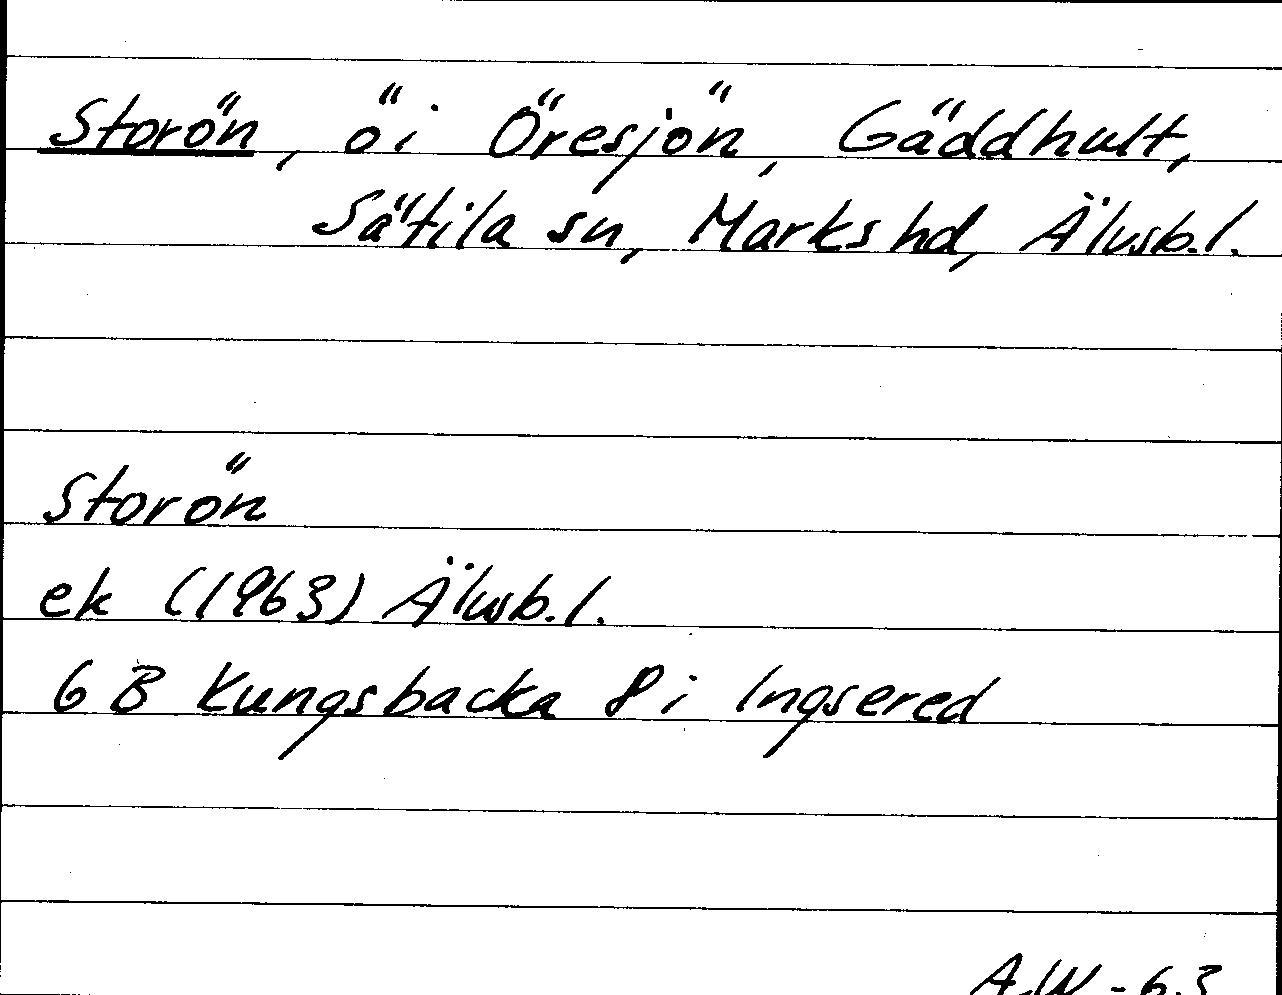 Storön, ö i Öresjön, Gäddhult,
Sätila sn, Marks hd, Älvsb.l.
Storön
ek (1963) Älvsb.l.
6 B Kungsbacka 8 i Ingsered